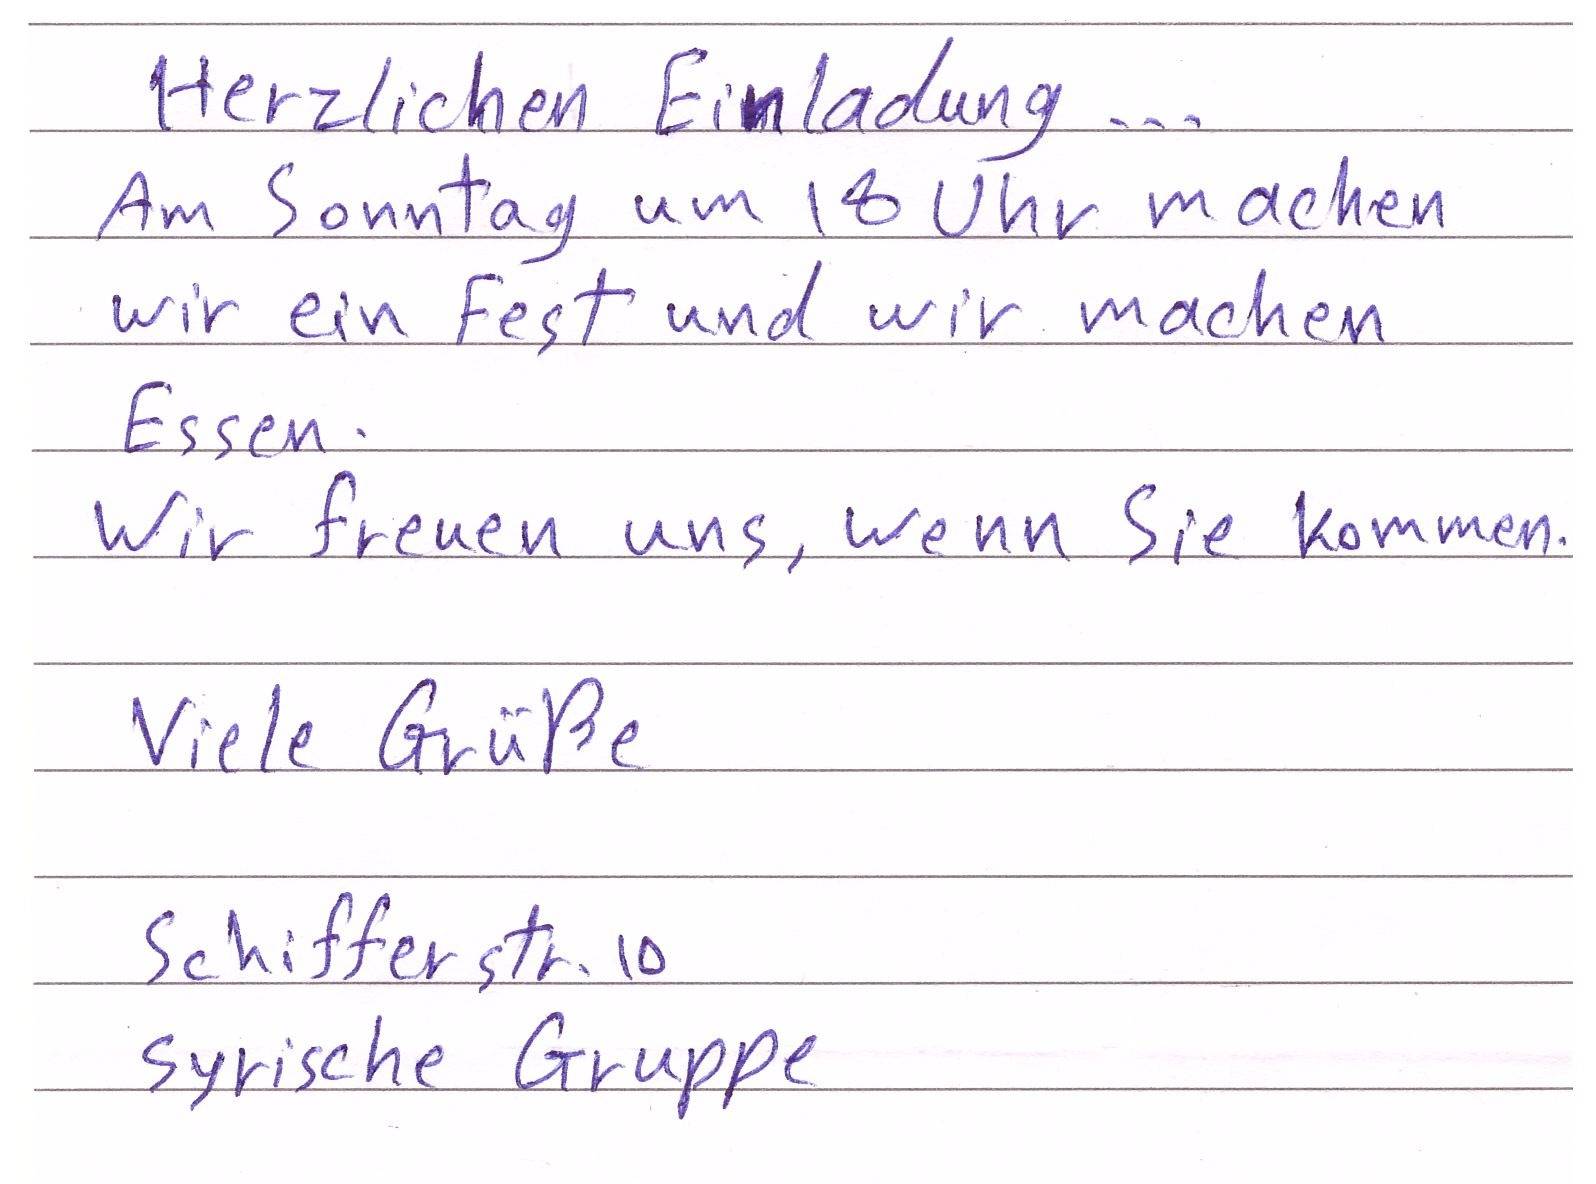 Herzlichen Einladung ...
Am Sonntag um 18 Uhr machen
wir ein Fest und wir machen
Essen.
Wir freuen uns, wenn Sie kommen.
Viele Grüße
Schifferstr. 10
syrische Gruppe